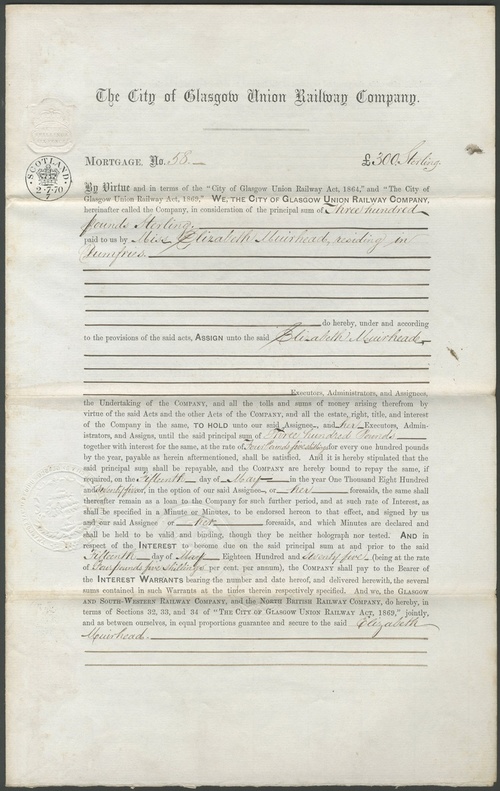 The City of Glasgow Union Railway Company.
MORTGAGE, No. 58.— £300. Sterling.
SCOTLAND
2·7·70
By Virtue and in terms of the "City of Glasgow Union Railway Act, 1864," and "The City of
Glasgow Union Railway Act, 1869," WE, THE CITY OF GLASGOW UNION RAILWAY COMPANY,
hereinafter called the Company, in consideration of the principal sum of Three hundred
pounds Sterling.
paid to us by Miss Elizabeth Muirhead, residing in
Dumfries.
do hereby, under and according
to the provisions of the said acts, ASSIGN unto the said Elizabeth Muirhead
Executors, Administrators, and Assignees,
the Undertaking of the COMPANY, and all the tolls and sums of money arising therefrom by
virtue of the said Acts and the other Acts of the COMPANY, and all the estate, right, title, and interest
of the COMPANY in the same, TO HOLD unto our said Assignee, and her Executors, Admin-
istrators, and Assigns, until the said principal sum of Three hundred Pounds
together with interest for the same, at the rate of Four Pounds five shillings for every one hundred pounds
by the year, payable as herein aftermentioned, shall be satisfied. And it is hereby stipulated that the
said principal sum shall be repayable, and the COMPANY are hereby bound to repay the same, if
required, on the Fifteenth day of May in the year One Thousand Eight Hundred
and Seventy five, in the option of our said Assignee, or her foresaids, the same shall
thereafter remain as a loan to the COMPANY for such further period, and at such rate of Interest, as
shall be specified in a Minute or Minutes, to be endorsed hereon to that effect, and signed by us
and our said Assignee or her foresaids, and which Minutes are declared and
shall be held to be valid and binding, though they be neither holograph nor tested. AND in
respect of the INTEREST to become due on the said principal sum at and prior to the said
Fifteenth day of May Eighteen Hundred and Seventy five (being at the rate
of Four pounds five Shillings per cent. per annum), the COMPANY shall pay to the Bearer of
the INTEREST WARRANTS bearing the number and date hereof, and delivered herewith, the several
sums contained in such Warrants at the times therein respectively specified. And we, the GLASGOW
AND SOUTH-WESTERN RAILWAY COMPANY, and the NORTH BRITISH RAILWAY COMPANY, do hereby, in
terms of Sections 32, 33, and 34 of "THE CITY OF GLASGOW UNION RAILWAY ACT, 1869," jointly,
and as between ourselves, in equal proportions guarantee and secure to the said Elizabeth
Muirhead.